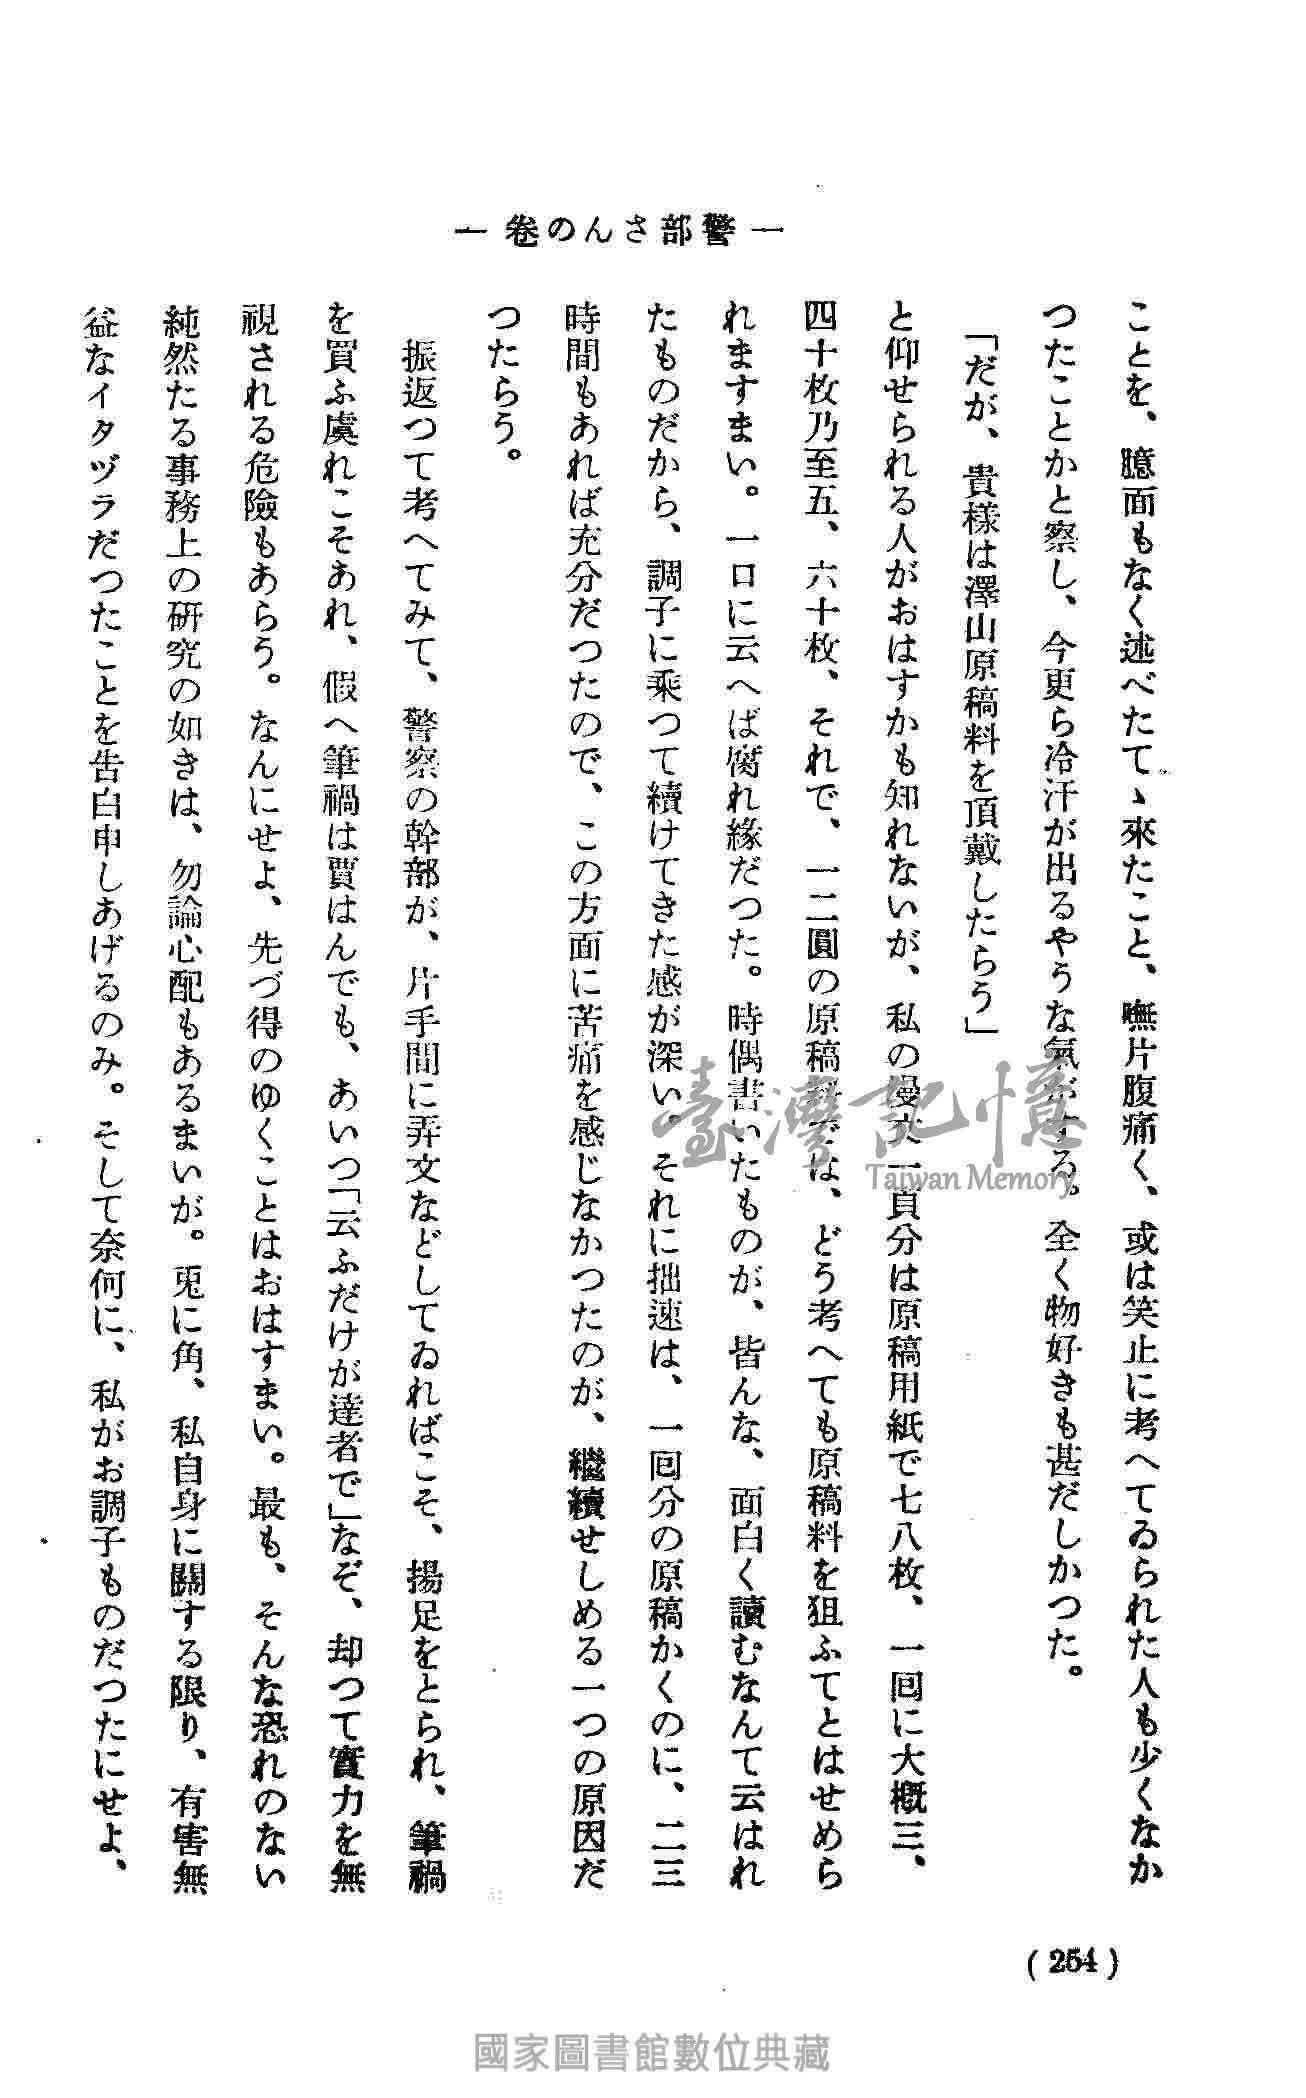 ― 警部さんの卷 ―
ことを、臆面もなく述べたてゝ來たこと、嘸片腹痛く、或は笑止に考へてゐられた人も少くなか
つたことかと察し、今更ら冷汗が出るやうな氣がする。全く物好きも甚だしかつた。
「だが、貴樣は澤山原稿料を頂戴したらう」
と仰せられる人がおはすかも知れないが、私の漫文一頁分は原稿用紙で七八枚、一回に大概三、
四十枚乃至五、六十枚、それで、一二圓の原稿料では、どう考へても原稿料を狙ふてとはせめら
れますまい。一口に云へば腐れ緣だつた。時偶書いたものが、皆んな、面白く讀むなんて云はれ
たものだから、調子に乘つて續けてきた感が深い。それに拙速は、一回分の原稿かくのに、二三
時間もあれば充分だつたので、この方面に苦痛を感じなかつたのが、繼續せしめる一つの原因だ
つたらう。
振返つて考へてみて、警察の幹部が、片手間に弄文などしてゐればこそ、揚足をとられ、筆禍
を買ふ虞れこそあれ、假へ筆禍は買はんでも、あいつ「云ふだけが達者で」なぞ、却つて實力を無
視される危險もあらう。なんにせよ、先づ得のゆくことはおはすまい。最も、そんな恐れのない
純然たる事務上の研究の如きは、勿論心配もあるまいが。兎に角、私自身に關する限り、有害無
益なイタヅラだつたことを告白申しあげるのみ。そして奈何に、私がお調子ものだつたにせよ、
(254)
臺灣記憶
Taiwan Memory
國家圖書館數位典藏